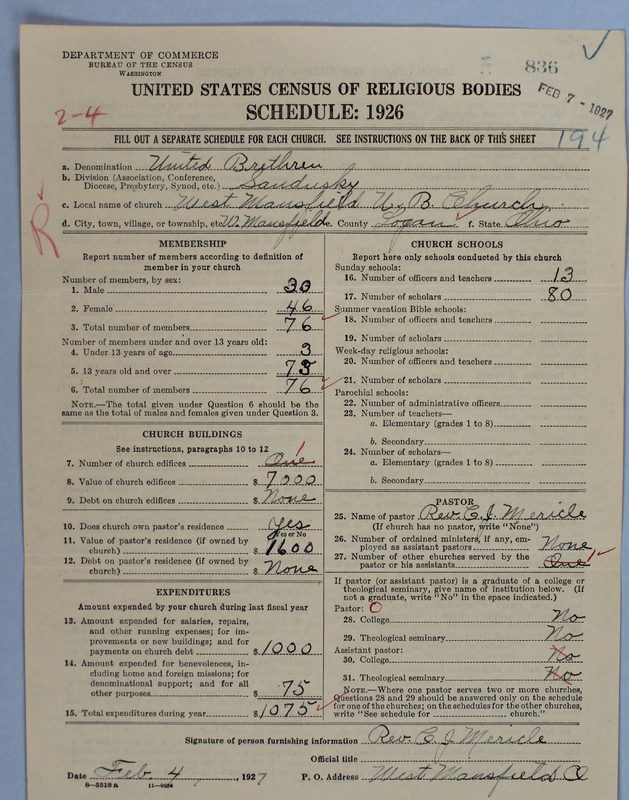 DEPARTMENT OF COMMERCE
BUREAU OF THE CENSUS
WASHINGTON
836
FEB 7 - 1927
UNITED STATES CENSUS OF RELIGIOUS BODIES
SCHEDULE: 1926
2-4
194
FILL OUT A SEPARATE SCHEDULE FOR EACH CHURCH. SEE INSTRUCTIONS ON THE BACK OF THIS SHEET
a. Denomination United Brethren
b. Division (Association, Conference, Diocese, Presbytery, Synod, etc.) Sandusky
c. Local name of church West Mansfield U. B. Church
d. City, town, village, or township, etc. W. Mansfield e. County Logan f. State Ohio
R
MEMBERSHIP
Report number of members according to definition of
member in your church
Number of members, by sex:
1. Male 30
2. Female 46
3. Total number of members 76
Number of members under and over 13 years old:
4. Under 13 years of age 3
5. 13 years old and over 73
6. Total number of members 76
NOTE.—The total given under Question 6 should be the
same as the total of males and females given under Question 3.
CHURCH BUILDINGS
See instructions, paragraphs 10 to 12
7. Number of church edifices One 1
8. Value of church edifices $ 7000
9. Debt on church edifices $ None
10. Does church own pastor's residence yes
Yes or No
11. Value of pastor's residence (if owned by
church) $ 1600
12. Debt on pastor's residence (if owned by
church) $ None
EXPENDITURES
Amount expended by your church during last fiscal year
13. Amount expended for salaries, repairs,
and other running expenses; for im-
provements or new buildings; and for
payments on church debt $ 1000
14. Amount expended for benevolences, in-
cluding home and foreign missions; for
denominational support; and for all
other purposes $ 75
15. Total expenditures during year $ 1075
CHURCH SCHOOLS
Report here only schools conducted by this church
Sunday schools:
16. Number of officers and teachers 13
17. Number of scholars 80
Summer vacation Bible schools:
18. Number of officers and teachers
19. Number of scholars
Week-day religious schools:
20. Number of officers and teachers
21. Number of scholars
Parochial schools:
22. Number of administrative officers
23. Number of teachers—
a. Elementary (grades 1 to 8)
b. Secondary
24. Number of scholars—
a. Elementary (grades 1 to 8)
b. Secondary
PASTOR
25. Name of pastor Rev. C. J. Mericle
(If church has no pastor, write "None")
26. Number of ordained ministers, if any, em-
ployed as assistant pastors None
27. Number of other churches served by the
pastor or his assistants One 1
If pastor (or assistant pastor) is a graduate of a college or
theological seminary, give name of institution below. (If
not a graduate, write "No" in the space indicated.)
Pastor: O
28. College No
29. Theological seminary No
Assistant pastor:
30. College No
31. Theological seminary No
NOTE.—Where one pastor serves two or more churches,
Questions 28 and 29 should be answered only on the schedule
for one of the churches; on the schedules for the other churches,
write "See schedule for church."
Signature of person furnishing information Rev. C. J. Mericle
Official title
Date Feb 4, 1927 P. O. Address West Mansfield O
8-5518a 11-9034